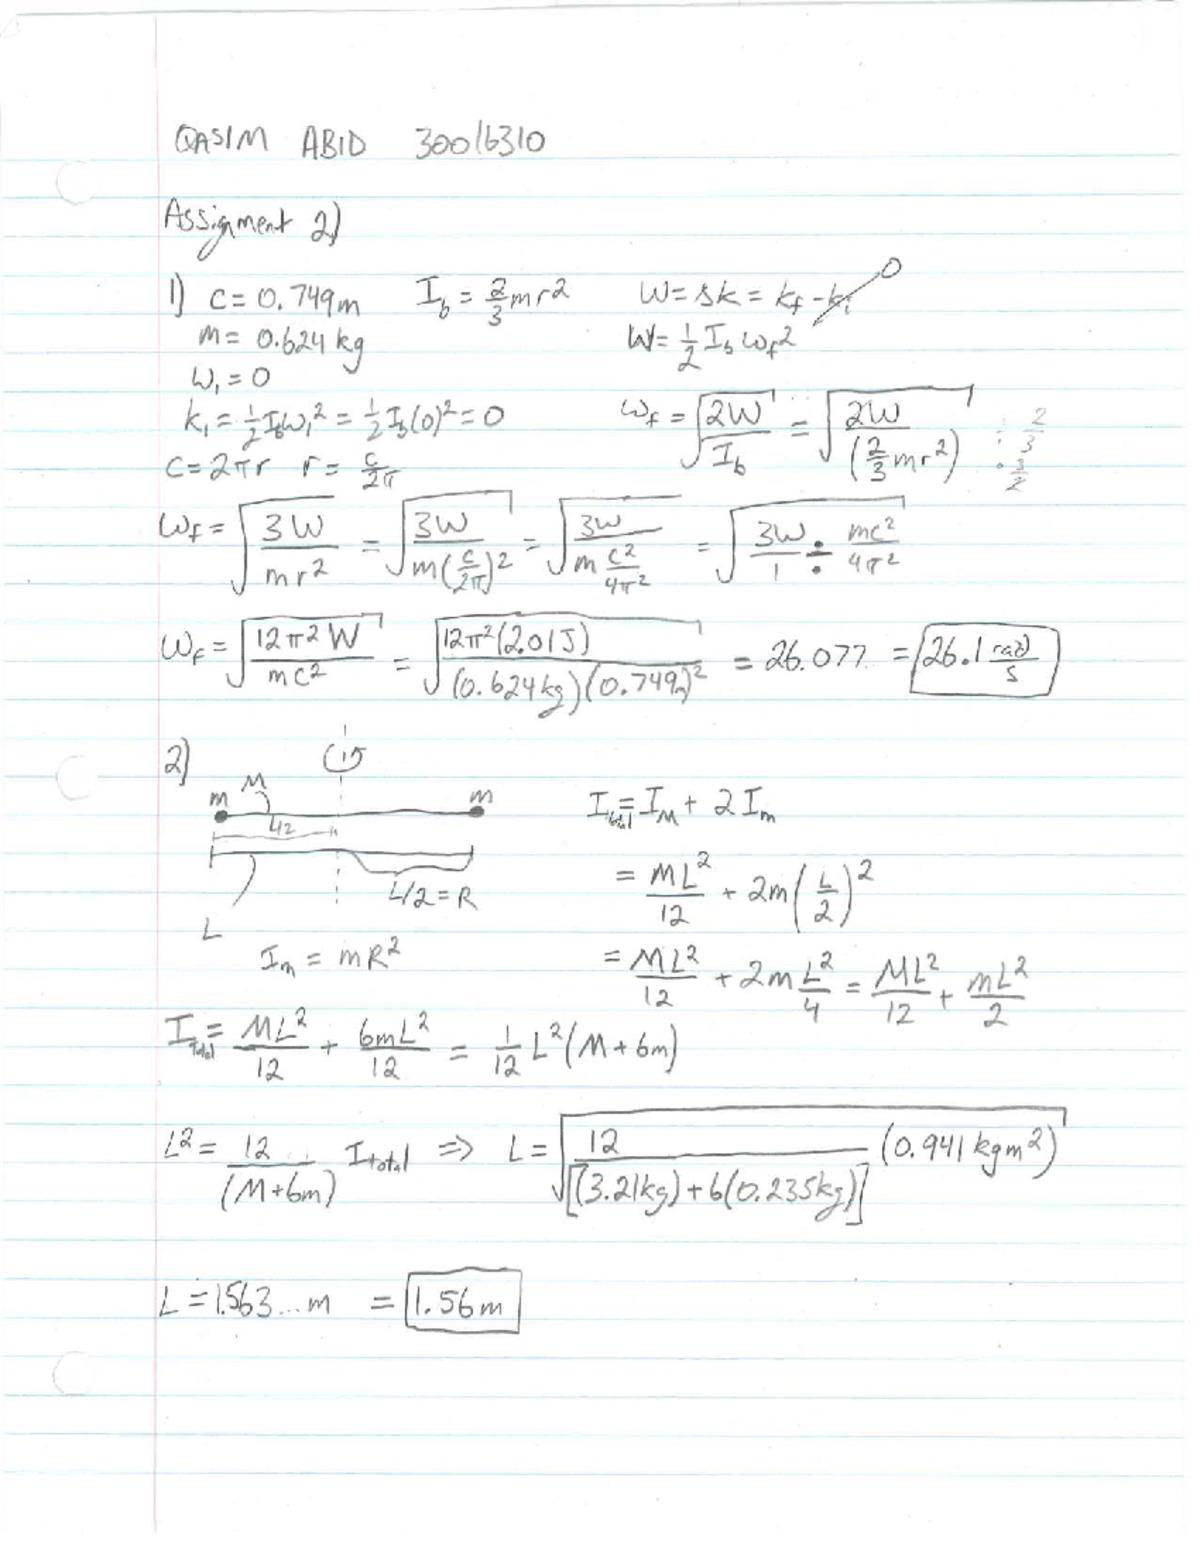 QASIM ABID 30016310
Assignment 2)
1) C = 0.749m I_b = 2/3 mr² W = Δk = k_f - k_i → 0
m = 0.624 kg W = 1/2 I_b ω_f²
ω₁ = 0
k₁ = 1/2 I_b ω₁² = 1/2 I_b (0)² = 0 ω_f = √(2W / I_b) = √(2W / (2/3 mr²)) ÷ 2/3
C = 2πr r = C/2π · 3/2
ω_f = √(3W / mr²) = √(3W / m(C/2π)²) = √(3W / m C²/4π²) = √(3W/1 ÷ mc²/4π²)
ω_f = √(12π²W / mc²) = √(12π²(2.01J) / (0.624kg)(0.749m)²) = 26.077 = 26.1 rad/s
2)
m M m I_total = I_M + 2 I_m
L/2
L/2 = R = ML²/12 + 2m(L/2)²
L
I_m = mR² = ML²/12 + 2m L²/4 = ML²/12 + mL²/2
I_Total = ML²/12 + 6mL²/12 = 1/12 L²(M + 6m)
L² = 12/(M+6m) I_total ⇒ L = √(12 / [(3.21kg) + 6(0.235kg)] (0.941 kgm²))
L = 1.563... m = 1.56m